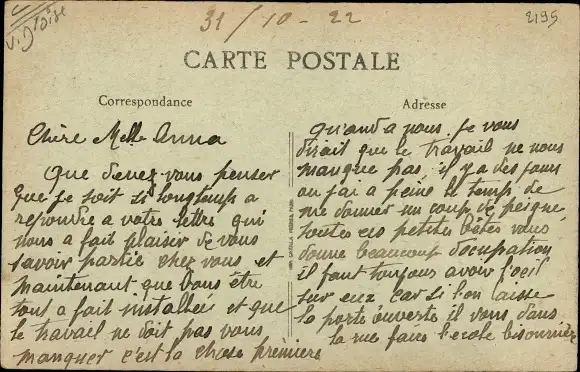 V. d'Oise
31/10-22
2195
CARTE POSTALE
Correspondance
Adresse
Chère Melle Anna
Que devez vous penser
que je soit si longtemps a
repondre a votre lettre qui
nous a fait plaisir de vous
savoir partie chez vous et
maintenant que vous être
tout a fait installée et que
le travail ne doit pas vous
manquer c'est la chose premiere
quand a nous. Je vous
dirait que le travail ne nous
manque pas, il y a des jours
ou j'ai a peine le temp de
me donner un coup de peigne,
toutes ces petites bêtes vous
donne beaucoup docupation
il faut toujours avoir l'oeil
sur eux, car si l'on laisse
la porte ouverte il vous dans
la rue faire l'ecole bisonnière